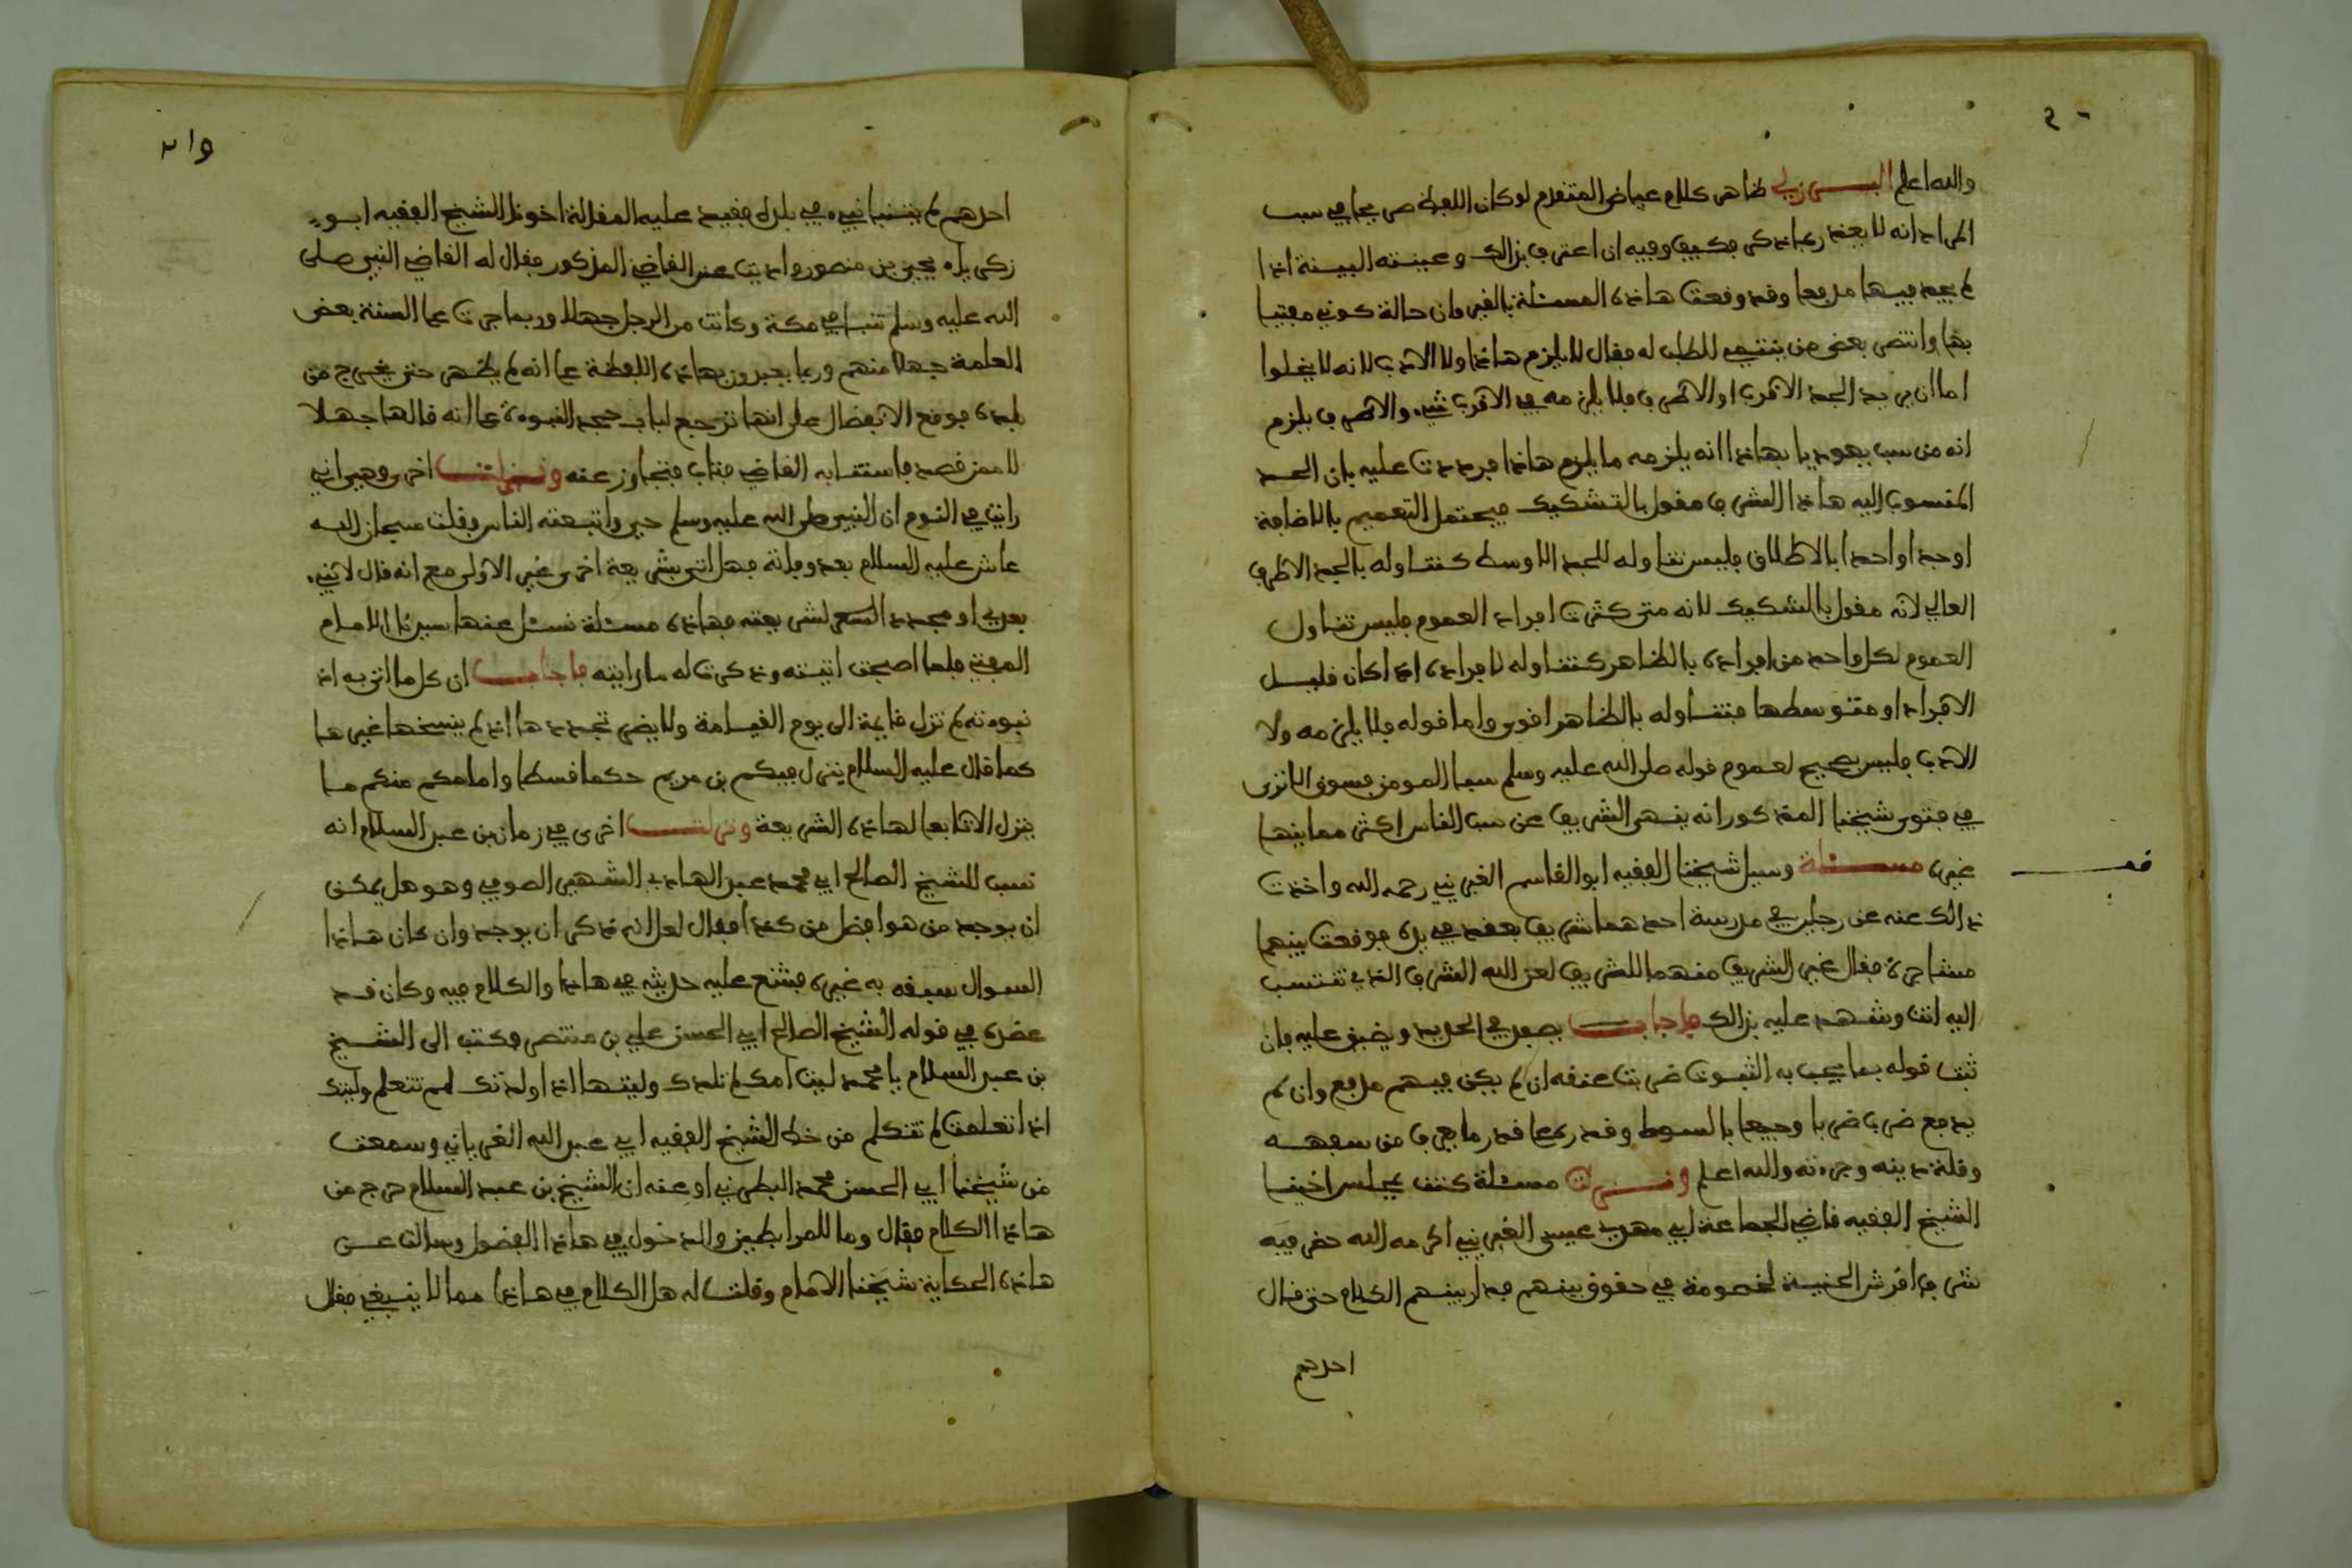 والله اعلم البرزلي ظاهر كلام عياض المتقدم لو كان اللفظ صريحا في سب
المراد انه لا يعذر بما ذكر فكيف وفيه ان اعترف بذالك وعينته البينة اذا
لم يجد فيها مدفعا وقد وقعت هاذه المسئلة بالقيروان حالة كوني مفتيا
بها وانتصر بعض من ينتمي للطلب له فقال لا يلزم هاذا ولا الادب لانه لا يخلوا
اما ان يريد الجد الاقرب او الاطرف فلا يلزمه في الاقرب شيء والاطرف يلزم
انه من سب يهوديا بهاذا انه يلزمه ما يلزم هاذا فرددت عليه بان الجد
المنسوب اليه هاذا الشرف مقول بالتشكيك فيحتمل التعميم بالاضافة
او جدا واحدا بالاطلاق فليس تناوله للجد الاوسط كتناوله بالجد الاطرف
العالي لانه مقول بالتشكيك لانه متى كثرت افراد العموم فليس تناول
العموم لكل واحد من افراده بالظاهر كتناوله لافراده اذا كان قليل
الافراد او متوسطها فتناوله بالظاهر اقوى واما قوله فلا يلزمه ولا
الادب فليس بصحيح لعموم قوله صلى الله عليه وسلم سباب المومن فسوق الا ترى
في فتوى شيخنا المذكور انه ينهى الشريف عن سب الناس اكثر مما ينها
غيره مسئلة وسيل شيخنا الفقيه ابو القاسم الغبريني رحمه الله واخذت
ذالك عنه عن رجلين في مدرسة احدهما شريف يعقد في بلده فوقعت بينهما
مشاجرة فقال غير الشريف منهما للشريف لعن الله الشرف الذي تنتسب
اليه انت وشهد عليه بذالك فاجاب يصفد في الحديد ويضيق عليه فان
ثبت قوله بما يجب به الثبوت ضربت عنقه ان لم يكن فيهم مدفع وان لم
يدفع ضرب ضربا وجيعا بالسوط وقدر معا قدر ما يعرف من سفهه
وقلة دينه وجرءته والله اعلم ونزلت مسئلة كنت بمجلس اخينا
الشيخ الفقيه قاضي الجماعة ابي مهدي عيسى الغبريني اكرمه الله حضر فيه
شرفا قرشر الحنية لخصومة في حقوق بينهم فدار بينهم الكلام حتى قال
احدهم
احدهم لم ينبا نبيء في بلده فقيد عليه المقالة اخونا الشيخ الفقيه ابو
زكرياء يحيى بن منصور واديت عند القاضي المذكور فقال له القاضي النبي صلى
الله عليه وسلم تنبا في مكة وكانت من الرجل جهلا وربما جرت على السنة بعض
العامة جهلا منهم وربما يعبرون بهاذه اللفظة على انه لم يظهر حتى يخرج من
بلده فوقع الانفصال على انها ترجع لباب جحد النبوءة على انه قالها جهلا
لا عن قصد فاستتابه القاضي فتاب فتجاوز عنه ونزلت اخرى وهي اني
رايت في النوم ان النبي صلى الله عليه وسلم حي واتبعته الناس وقلت سبحان الله
عاش عليه السلام بعد وفاته فهل اتى بشريعة اخرى غير الاولى مع انه قال لا نبيء
بعدي او مجدد لشريعته فهاذه مسئلة نسئل عنها سيدنا الامام
المفتي فلما اصبحت اتيته وذكرت له ما رايته فاجاب ان كل ما اتى به اذ
نبوءته لم تزل قايمة الى يوم القيامة ولا يضر تجددها اذ لم ينسخها غيرها
كما قال عليه السلام ينزل فيكم بن مريم حكما قسطا وامامكم منكم ما
ينزل الا تابعا لهاذه الشريعة ونزلت اخرى في زمان بن عبد السلام انه
نسب للشيخ الصالح ابي محمد عبد الهادي الشهير الصوفي وهو هل يمكن
ان يوجد من هو افضل من كذا فقال لعل الله قد كان يوجد وان كان هاذا
السوال سبقه به غيره فشنع عليه حديثه في هاذا والكلام فيه وكان قد
عضده في قوله الشيخ الصالح ابي الحسن علي بن منتصر وكتب الى الشيخ
بن عبد السلام يا محمد ليت امك لم تلدك وليتها اذا ولدتك لم تتعلم وليتك
اذا تعلمت لم تتكلم من خط الشيخ الفقيه ابي عبد الله الغرياني وسمعت
من شيخنا ابي الحسن محمد البطرني او عنه ان الشيخ بن عبد السلام حرج من
هاذا الكلام فقال وما للمرابطين والدخول في هاذا الفضول وسالت عن
هاذه الحكاية شيخنا الامام وقلت له هل الكلام في هاذا مما لا ينبغي فقال